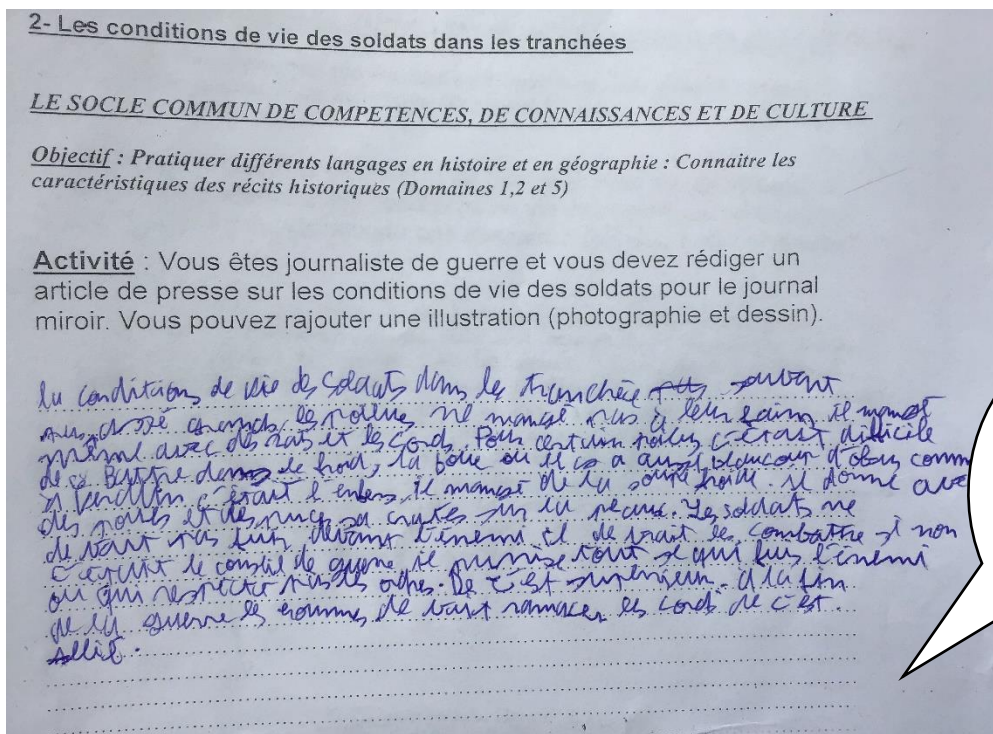 2- Les conditions de vie des soldats dans les tranchées
LE SOCLE COMMUN DE COMPETENCES, DE CONNAISSANCES ET DE CULTURE
Objectif : Pratiquer différents langages en histoire et en géographie : Connaitre les
caractéristiques des récits historiques (Domaines 1,2 et 5)
Activité : Vous êtes journaliste de guerre et vous devez rédiger un
article de presse sur les conditions de vie des soldats pour le journal
miroir. Vous pouvez rajouter une illustration (photographie et dessin).
conditions de vie des soldats dans les tranchée souvent
les poilus ne mangé pas à leur faim il manget
même avec des rats et les cords. Pour certain poilus c'était difficile
de se Battre dans le froid, la boue ou il a aussi beaucoup d'obus comm
à Verdun c'était l'enfers. Il mangé de la soupe froide. il dormé ave
des et des puces sa sur la peaux. Les soldats ne
de vait pas fuir devant l'énemi il de vait les combattre si non
c'était le consiel de guerre il punisé tout se qui l'énemi
ou qui respecter pas les ordres. De c'est supérieur. a la fin
de la guerre les homme de vait ramacer les cords de c'est
allié.